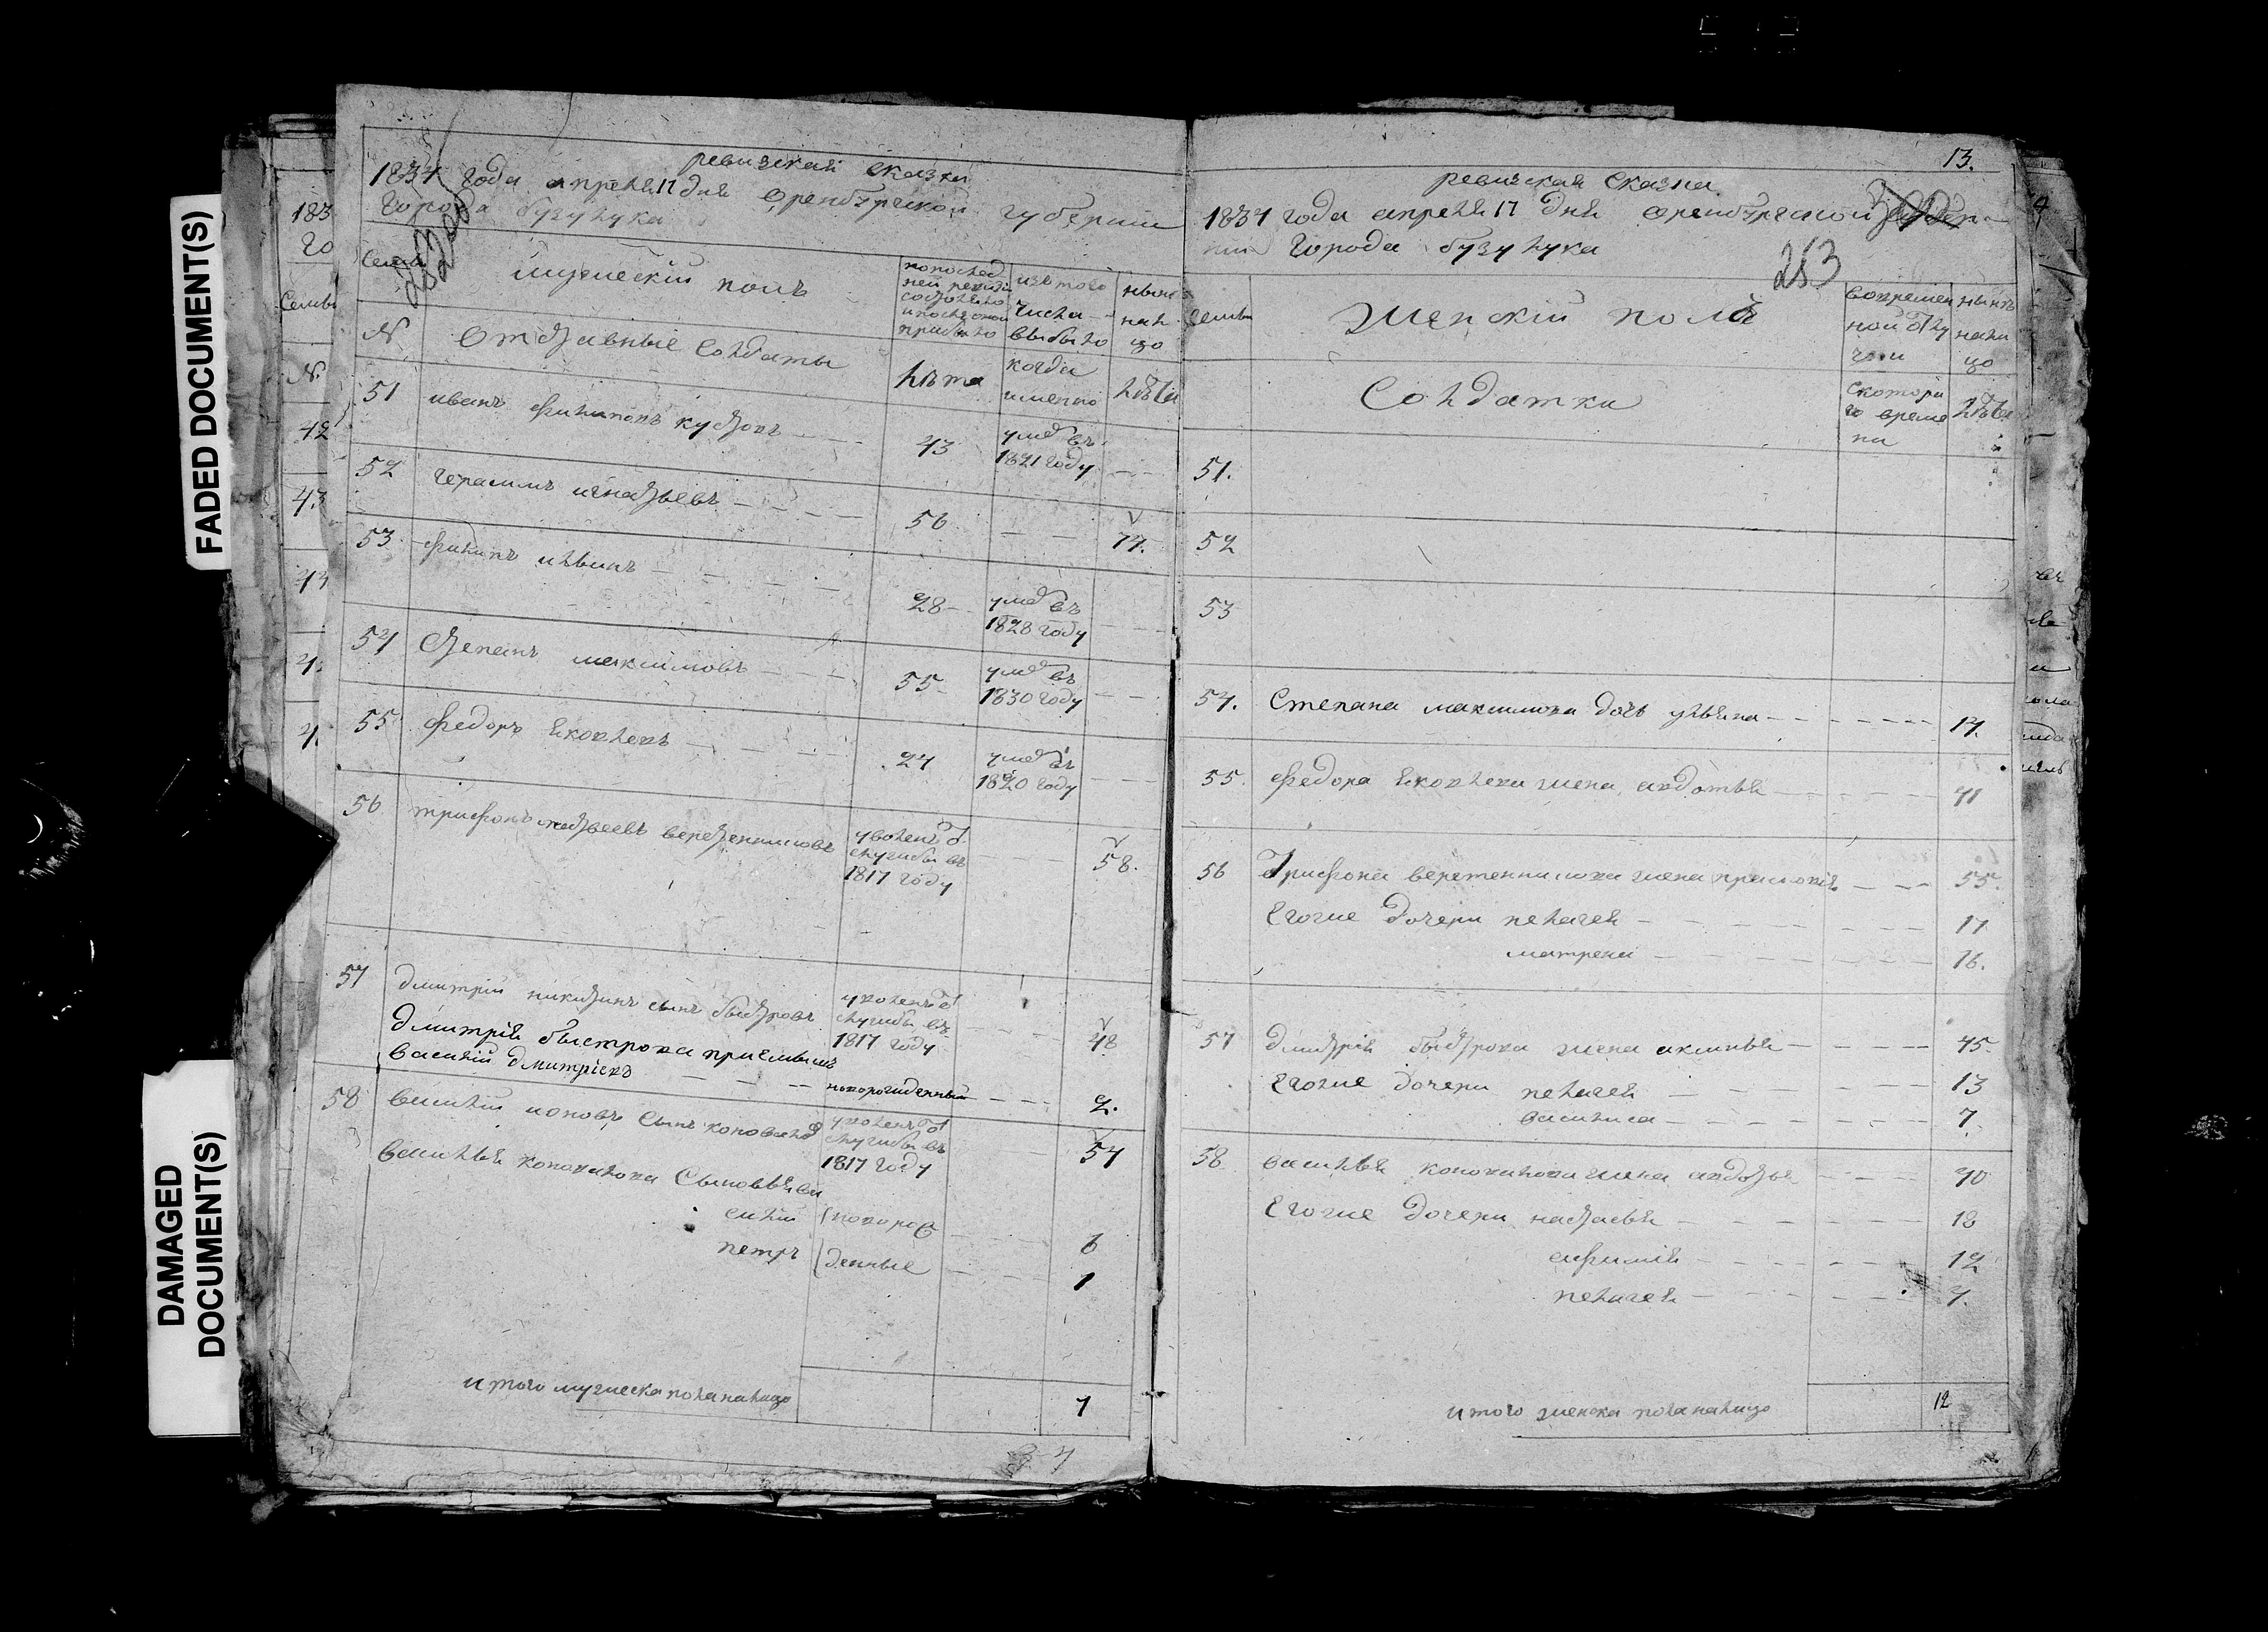 FADED DOCUMENT(S)
DAMAGED DOCUMENT(S)
ревизская сказка
1834 года апреля 17 дня оренбургской губернии
города бузулука
семьи
мужеский полъ
по послед
ней ревизии
состояло
и после оной
прибыло
изъ того
числа
выбыло
ныне
на ли
цо
№
отставные солдаты
лета
когда
именно
лета
51 иванъ филиповъ кустовъ 43 умѣ въ 1821 году
52 герасимъ игнатьевъ 56 74.
53 филипъ ильинъ 28 умѣ въ 1828 году
54 степанъ максимовъ 55 умѣ въ 1830 году
55 федоръ яковлевъ 24 умѣ въ 1820 году
56 трифонъ матвеевъ веретенниковъ уволенъ от службы въ 1817 году 58.
57 дмитрий никитинъ сынъ быстровъ уволенъ от службы въ 1817 году 48
дмитрия быстрова приемышъ
василий дмитриевъ новорожденный 2.
58 василий ионовъ сынъ коновалов уволенъ от службы въ 1817 году 54
василья коновалова сыновья ва
силий новорож 6
петръ денные 1
итого мужеска пола налицо 7
13.
ревизская сказка
1834 года апреля 17 дня оренбургской губер
нии города бузулука
253
семьи
женский полъ
во времен
ной отлу
чки
ныне
нали
цо
солдатки
с котора
го време
ни
лета
51.
52
53
54. степана максимова дочь ульяна 14.
55. федора яковлева жена авдотья 41
56 трифона веретенникова жена прасковья 55.
его же дочери пелагея 17
матрена 16.
57 дмитрия быстрова жена акинья 45.
его же дочери пелагея 13
василиса 7.
58. василья коновалова жена авдотья 40
его же дочери настасья 18
афимия 12
пелагея 4.
итого женска пола налицо 12